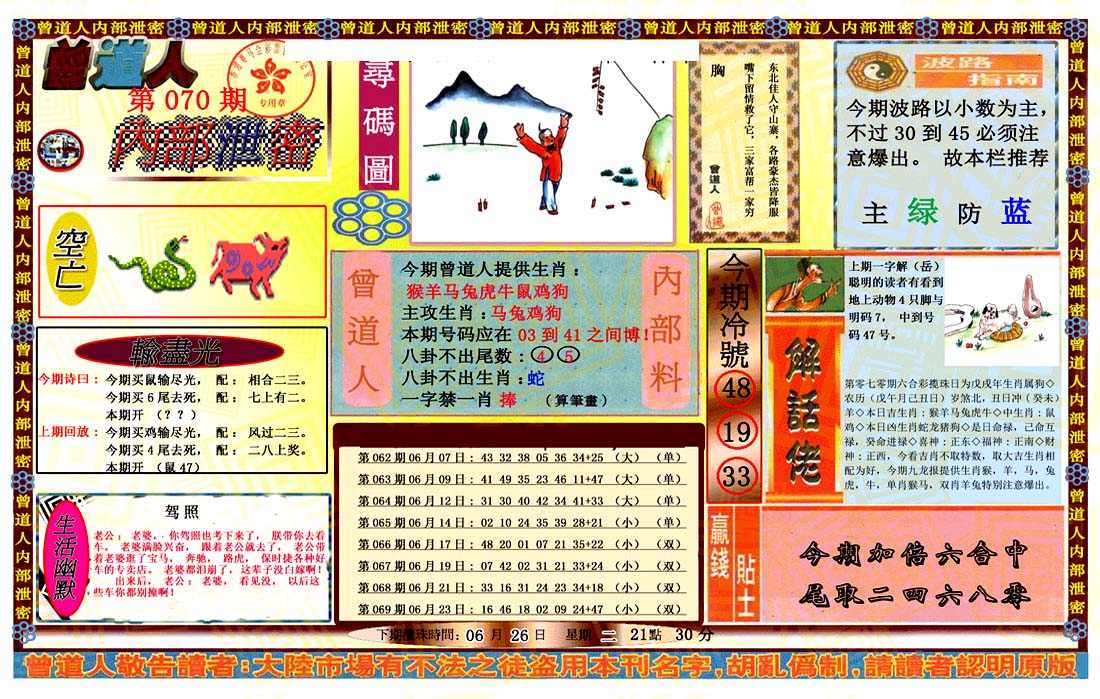 曾道人内部泄密 曾道人内部泄密 曾道人内部泄密 曾道人内部泄密 曾道人内部泄密 曾道人内部泄密 曾道人内部泄密
曾道人
第 070 期
专用章
内部泄密
尋碼圖
东北佳人守山寨，各路豪杰皆降服
嘴下留情救了它，三家富帮一家穷
胸
曾道人
波路指南
今期波路以小数为主，
不过 30 到 45 必须注
意爆出。 故本栏推荐
主 绿 防 蓝
空亡
曾道人
内部料
今期曾道人提供生肖：
猴羊马兔虎牛鼠鸡狗
主攻生肖：马兔鸡狗
本期号码应在 03 到 41 之间博！
八卦不出尾数：④ ⑤
八卦不出生肖：蛇
一字禁一肖 捧 （算筆畫）
今期冷號
48
19
33
解話佬
上期一字解（岳）
聪明的读者有看到
地上动物 4 只脚与
明码 7， 中到号
码 47 号。
第零七零期六合彩搅珠日为戊戌年生肖属狗◇
农历（戊午月己丑日）岁煞北，丑日冲（癸未）
羊◇本日吉生肖：猴羊马兔虎牛◇中生肖：鼠
鸡◇本日凶生肖蛇龙猪狗◇是日命禄，己命互
禄，癸命进禄◇喜神：正东◇福神：正南◇财
神：正西，今看吉肖不取特数，取大吉生肖相
配为好，今期九龙报提供生肖猴，羊，马，兔
虎，牛，单肖猴马，双肖羊兔特别注意爆出。
輸盡光
今期诗曰： 今期买鼠输尽光， 配： 相合二三。
今期买 6 尾去死， 配： 七上有二。
本期开 （? ? ）
上期回放： 今期买鸡输尽光， 配： 风过二三。
今期买 4 尾去死， 配： 二八上奖。
本期开 （鼠 47）
生活幽默
驾照
老公： 老婆， 你驾照也考下来了， 朕带你去看
车。 老婆满脸兴奋， 跟着老公就去了， 老公带
着老婆逛了宝马， 奔驰， 路虎， 保时捷各种好
车的专卖店。 老婆都泪崩了，这辈子没白嫁啊！
出来后， 老公： 老婆， 看见没， 以后这
些车你都别撞啊！
第 062 期 06 月 07 日： 43 32 38 05 36 34+25 （大） （单）
第 063 期 06 月 09 日： 41 49 35 23 46 11+47 （大） （单）
第 064 期 06 月 12 日： 31 30 40 42 34 41+33 （大） （单）
第 065 期 06 月 14 日： 02 10 24 35 39 28+21 （小） （单）
第 066 期 06 月 17 日： 48 20 01 07 21 35+22 （小） （双）
第 067 期 06 月 19 日： 07 42 02 31 21 33+24 （小） （双）
第 068 期 06 月 21 日： 33 16 31 24 23 34+18 （小） （双）
第 069 期 06 月 23 日： 16 46 18 02 09 24+47 （小） （双）
贏錢貼士
今期加倍六會中
尾取二四六八零
下期攪珠時間：06 月 26 日 星期 二 21點 30 分
曾道人敬告讀者：大陸市場有不法之徒盗用本刊名字，胡亂僞制，請讀者認明原版
曾道人内部泄密 曾道人内部泄密 曾道人内部泄密 曾道人内部泄密
曾道人内部泄密 曾道人内部泄密 曾道人内部泄密 曾道人内部泄密